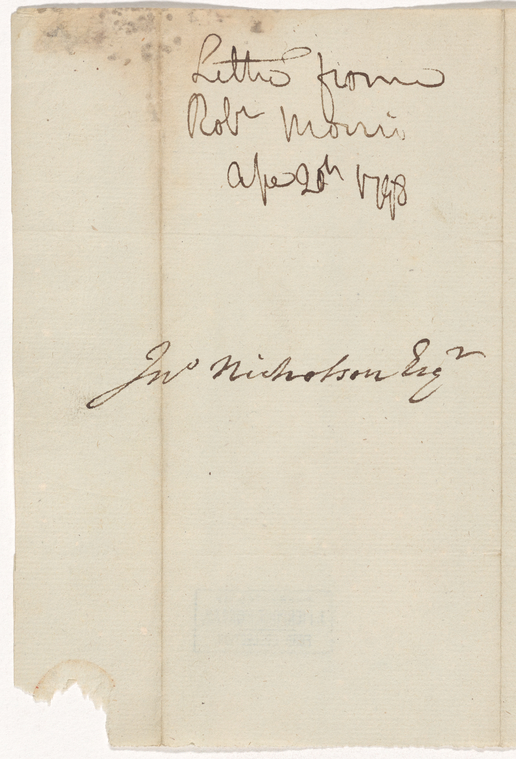 Letter from
Robt Morris
Ape 20th 1798
Jno Nicholson Esqr